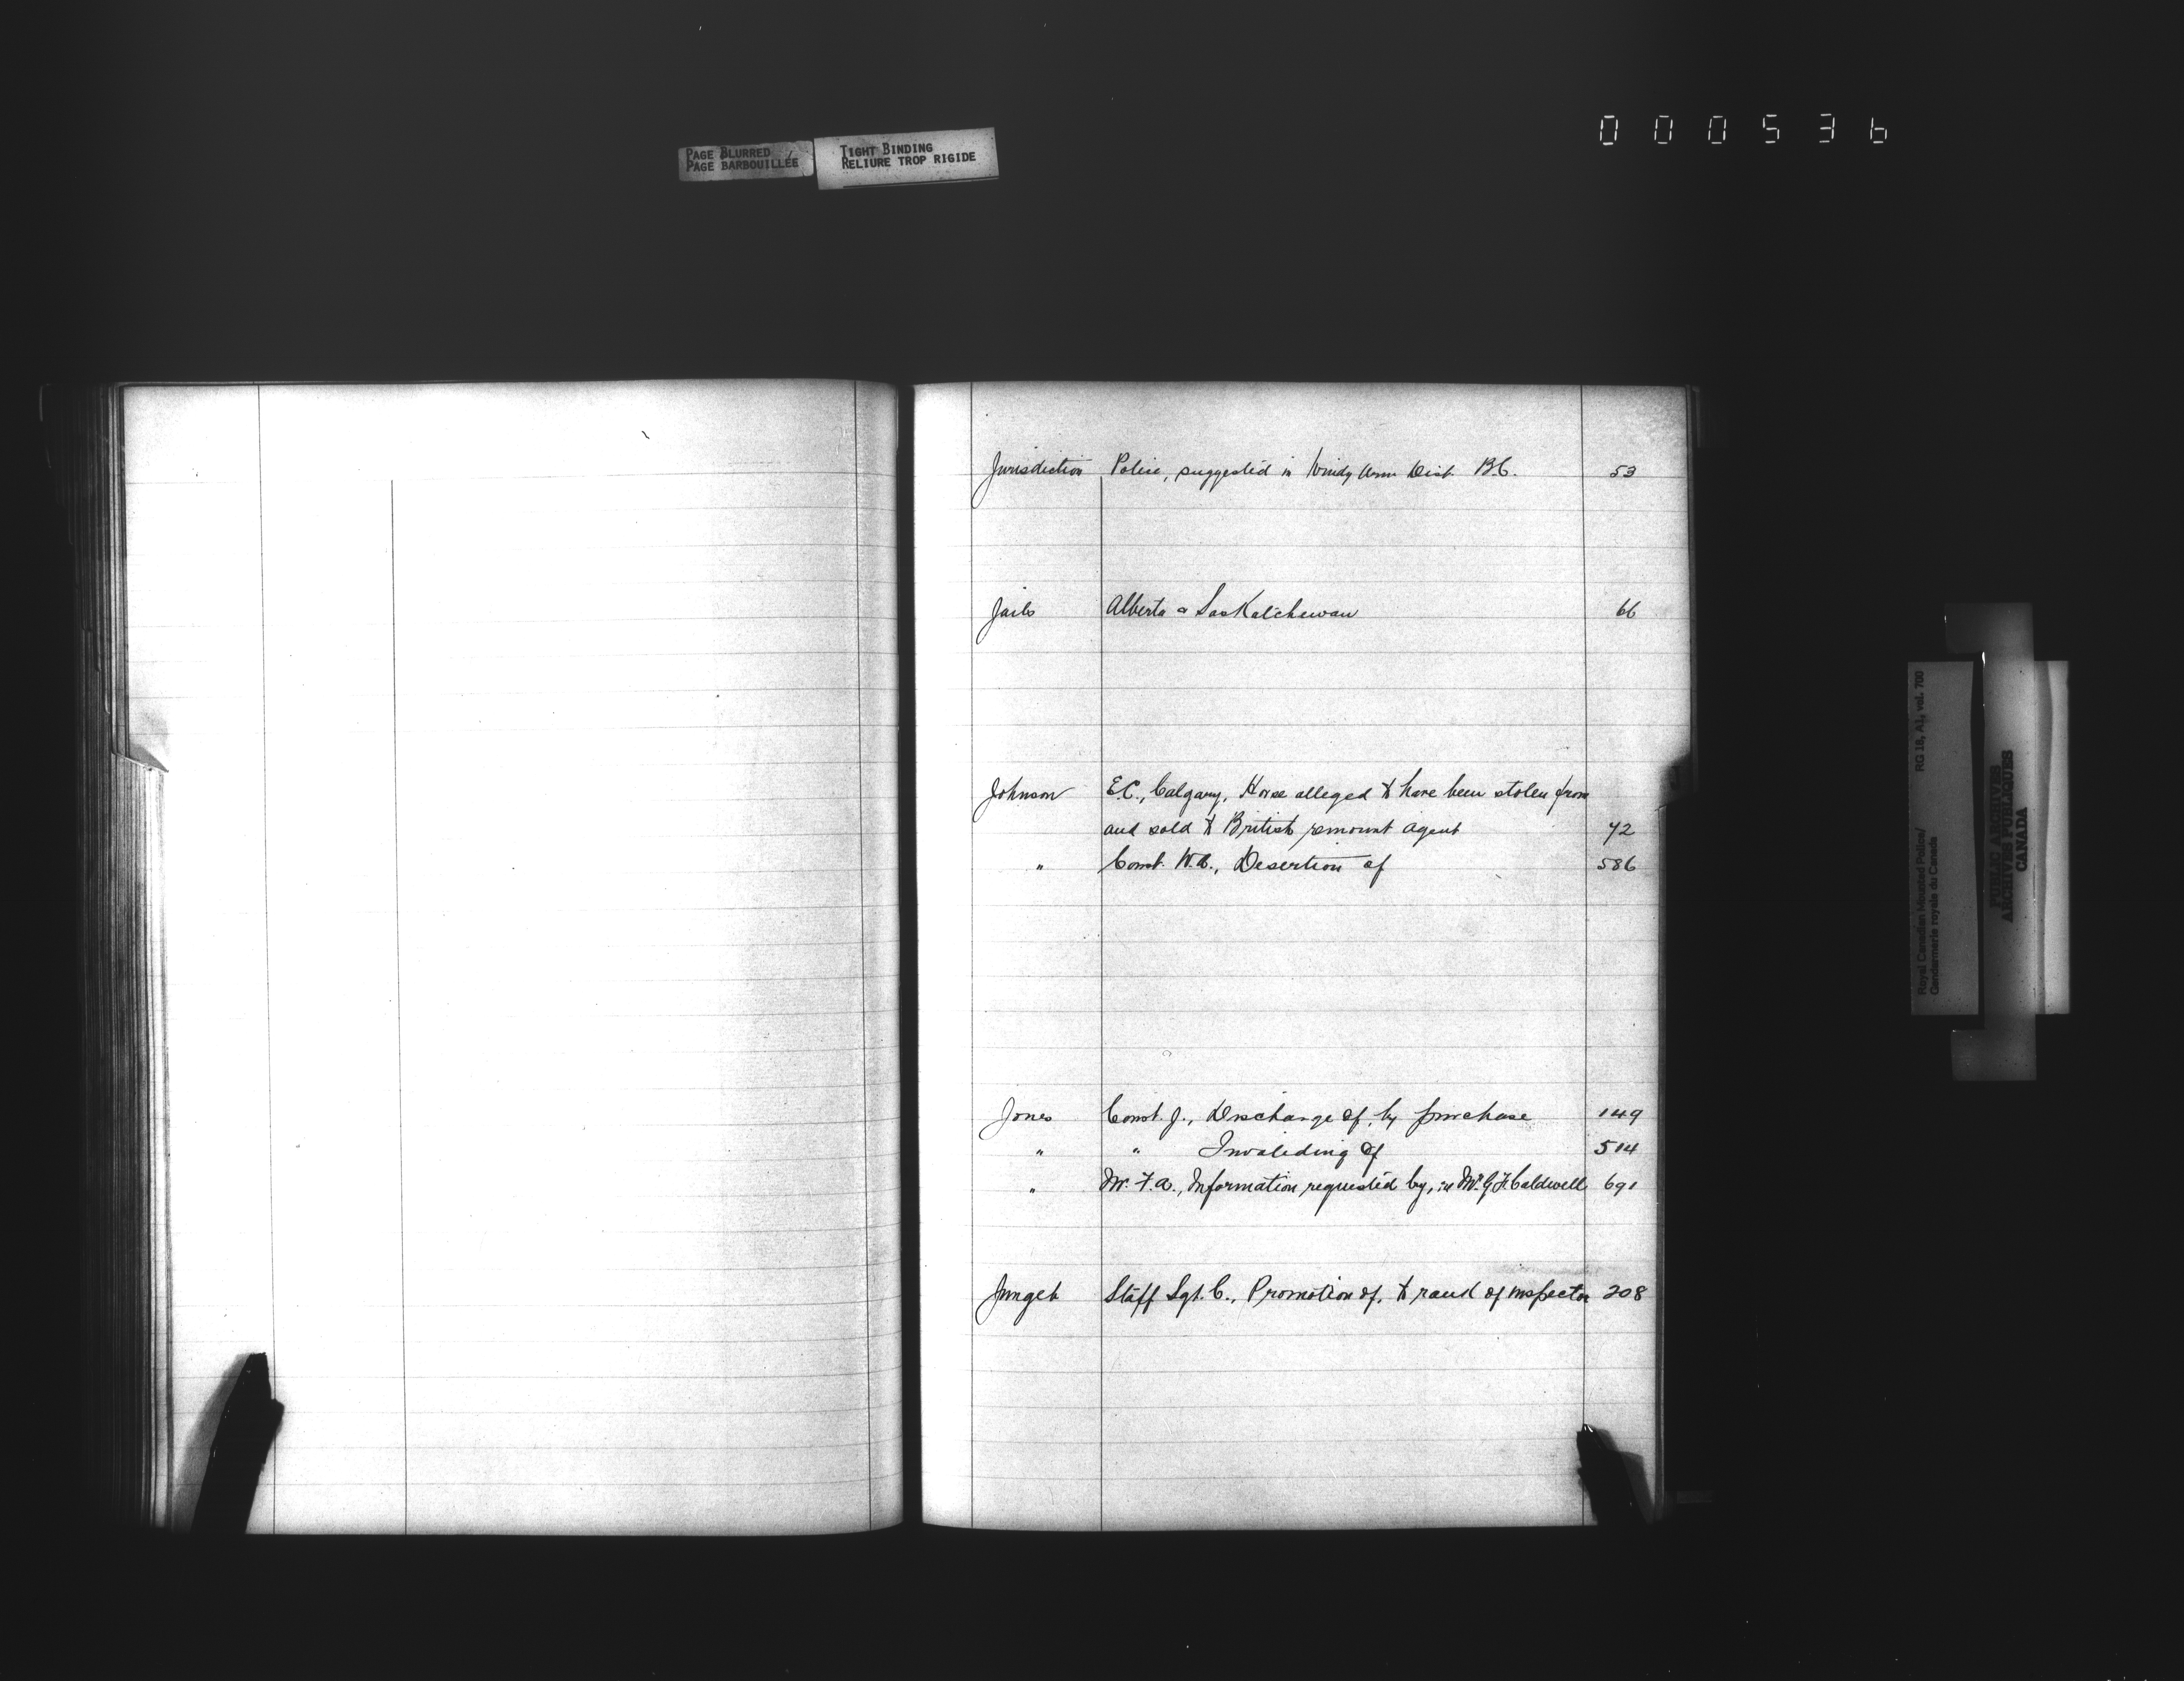 PAGE BLURRED
PAGE BARBOUILLÉE
TIGHT BINDING
RELIURE TROP RIGIDE
000536
Jurisdiction Police, suggested in Windy Arm Dist. B.C. 53
Jails Alberta & Saskatchewan 66
Johnson E.C., Calgary, Horse alleged to have been stolen from
and sold to British remount agent 72
" Const. W.A., Desertion of 586
Jones Const. J., Discharge of, by purchase 149
" " Invaliding of 514
" Mr. F.A., Information requested by, re Mr. G.F. Caldwell 691
Junget Staff Sgt. C., Promotion of, to rank of inspector 208
Royal Canadian Mounted Police/
Gendarmerie royale du Canada
RG 18, A1, vol. 700
PUBLIC ARCHIVES
ARCHIVES PUBLIQUES
CANADA